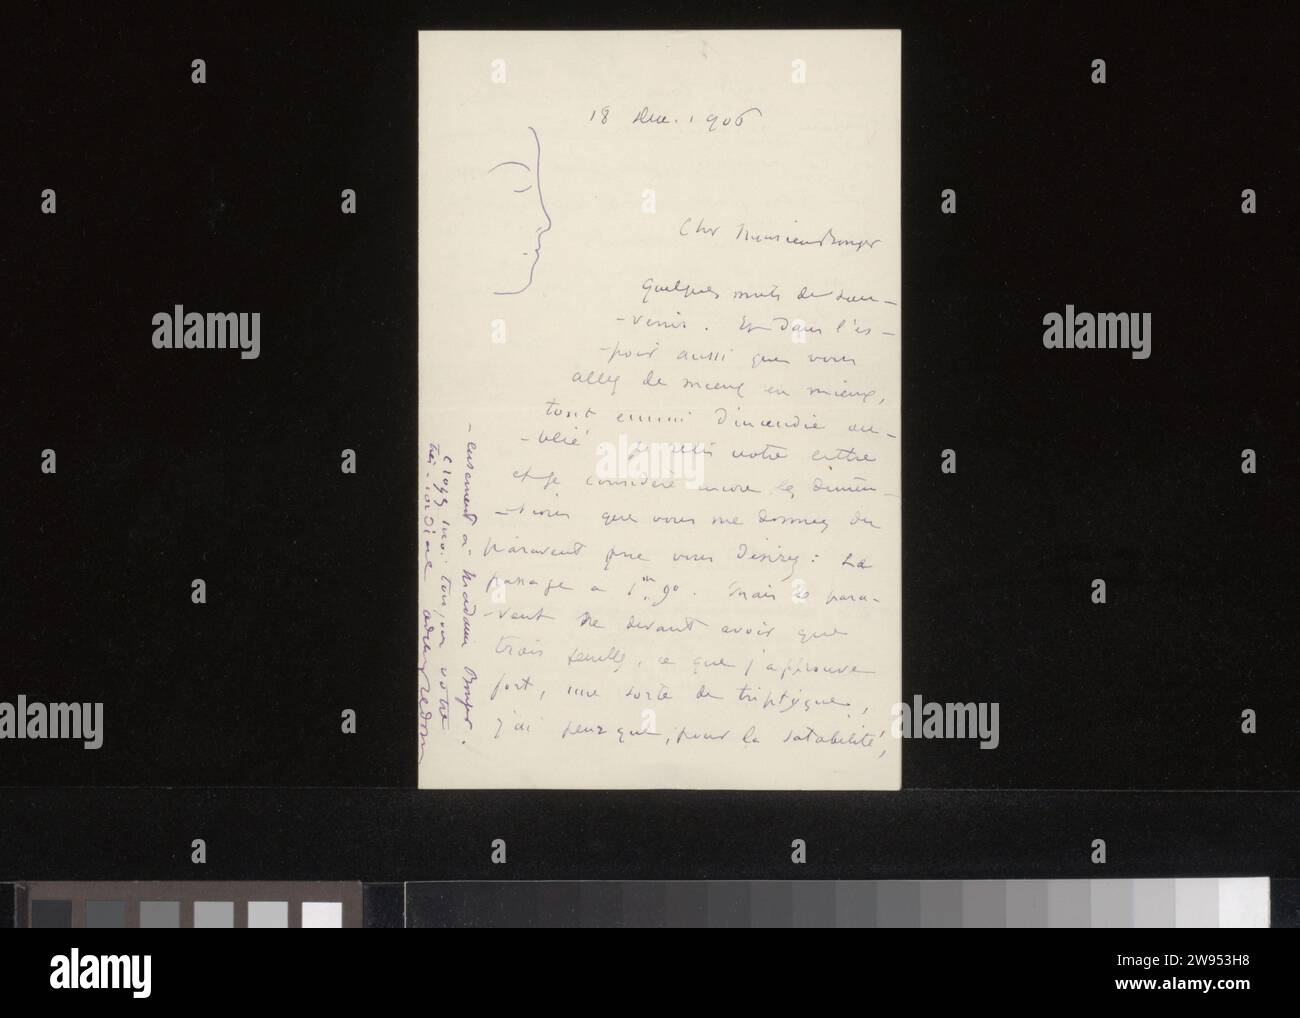 18 Dec. 1906
Cher Monsieur Bonger
Quelques mots de sou-
-venir. Et dans l'es-
-poir aussi que vous
allez de mieux en mieux,
tout ennui d'incendie ou-
-blié. Je relis votre lettre
et je considère encore les dimen-
-sions que vous me donnez du
paravent que vous désirez : Le
passage a 1m 90. Mais le para-
-vent ne devant avoir que
trois feuilles, ce que j'approuve
fort, une sorte de triptyque,
j'ai pensé que, pour la stabilité,
-eusement à Madame Bonger.
Croyez moi toujours votre
très-cordial Odilon Redon
alamy
Image ID: 2W953H8
www.alamy.com